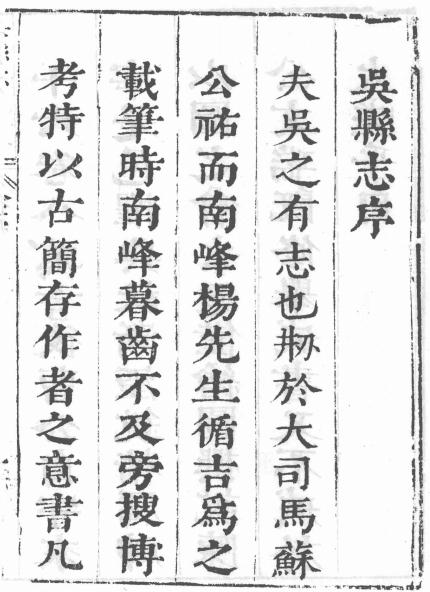 吳縣志序
夫吳之有志也刱於大司馬蘇
公祐而南峰楊先生循吉爲之
載筆時南峰暮齒不及旁搜博
考特以古簡存作者之意書凡